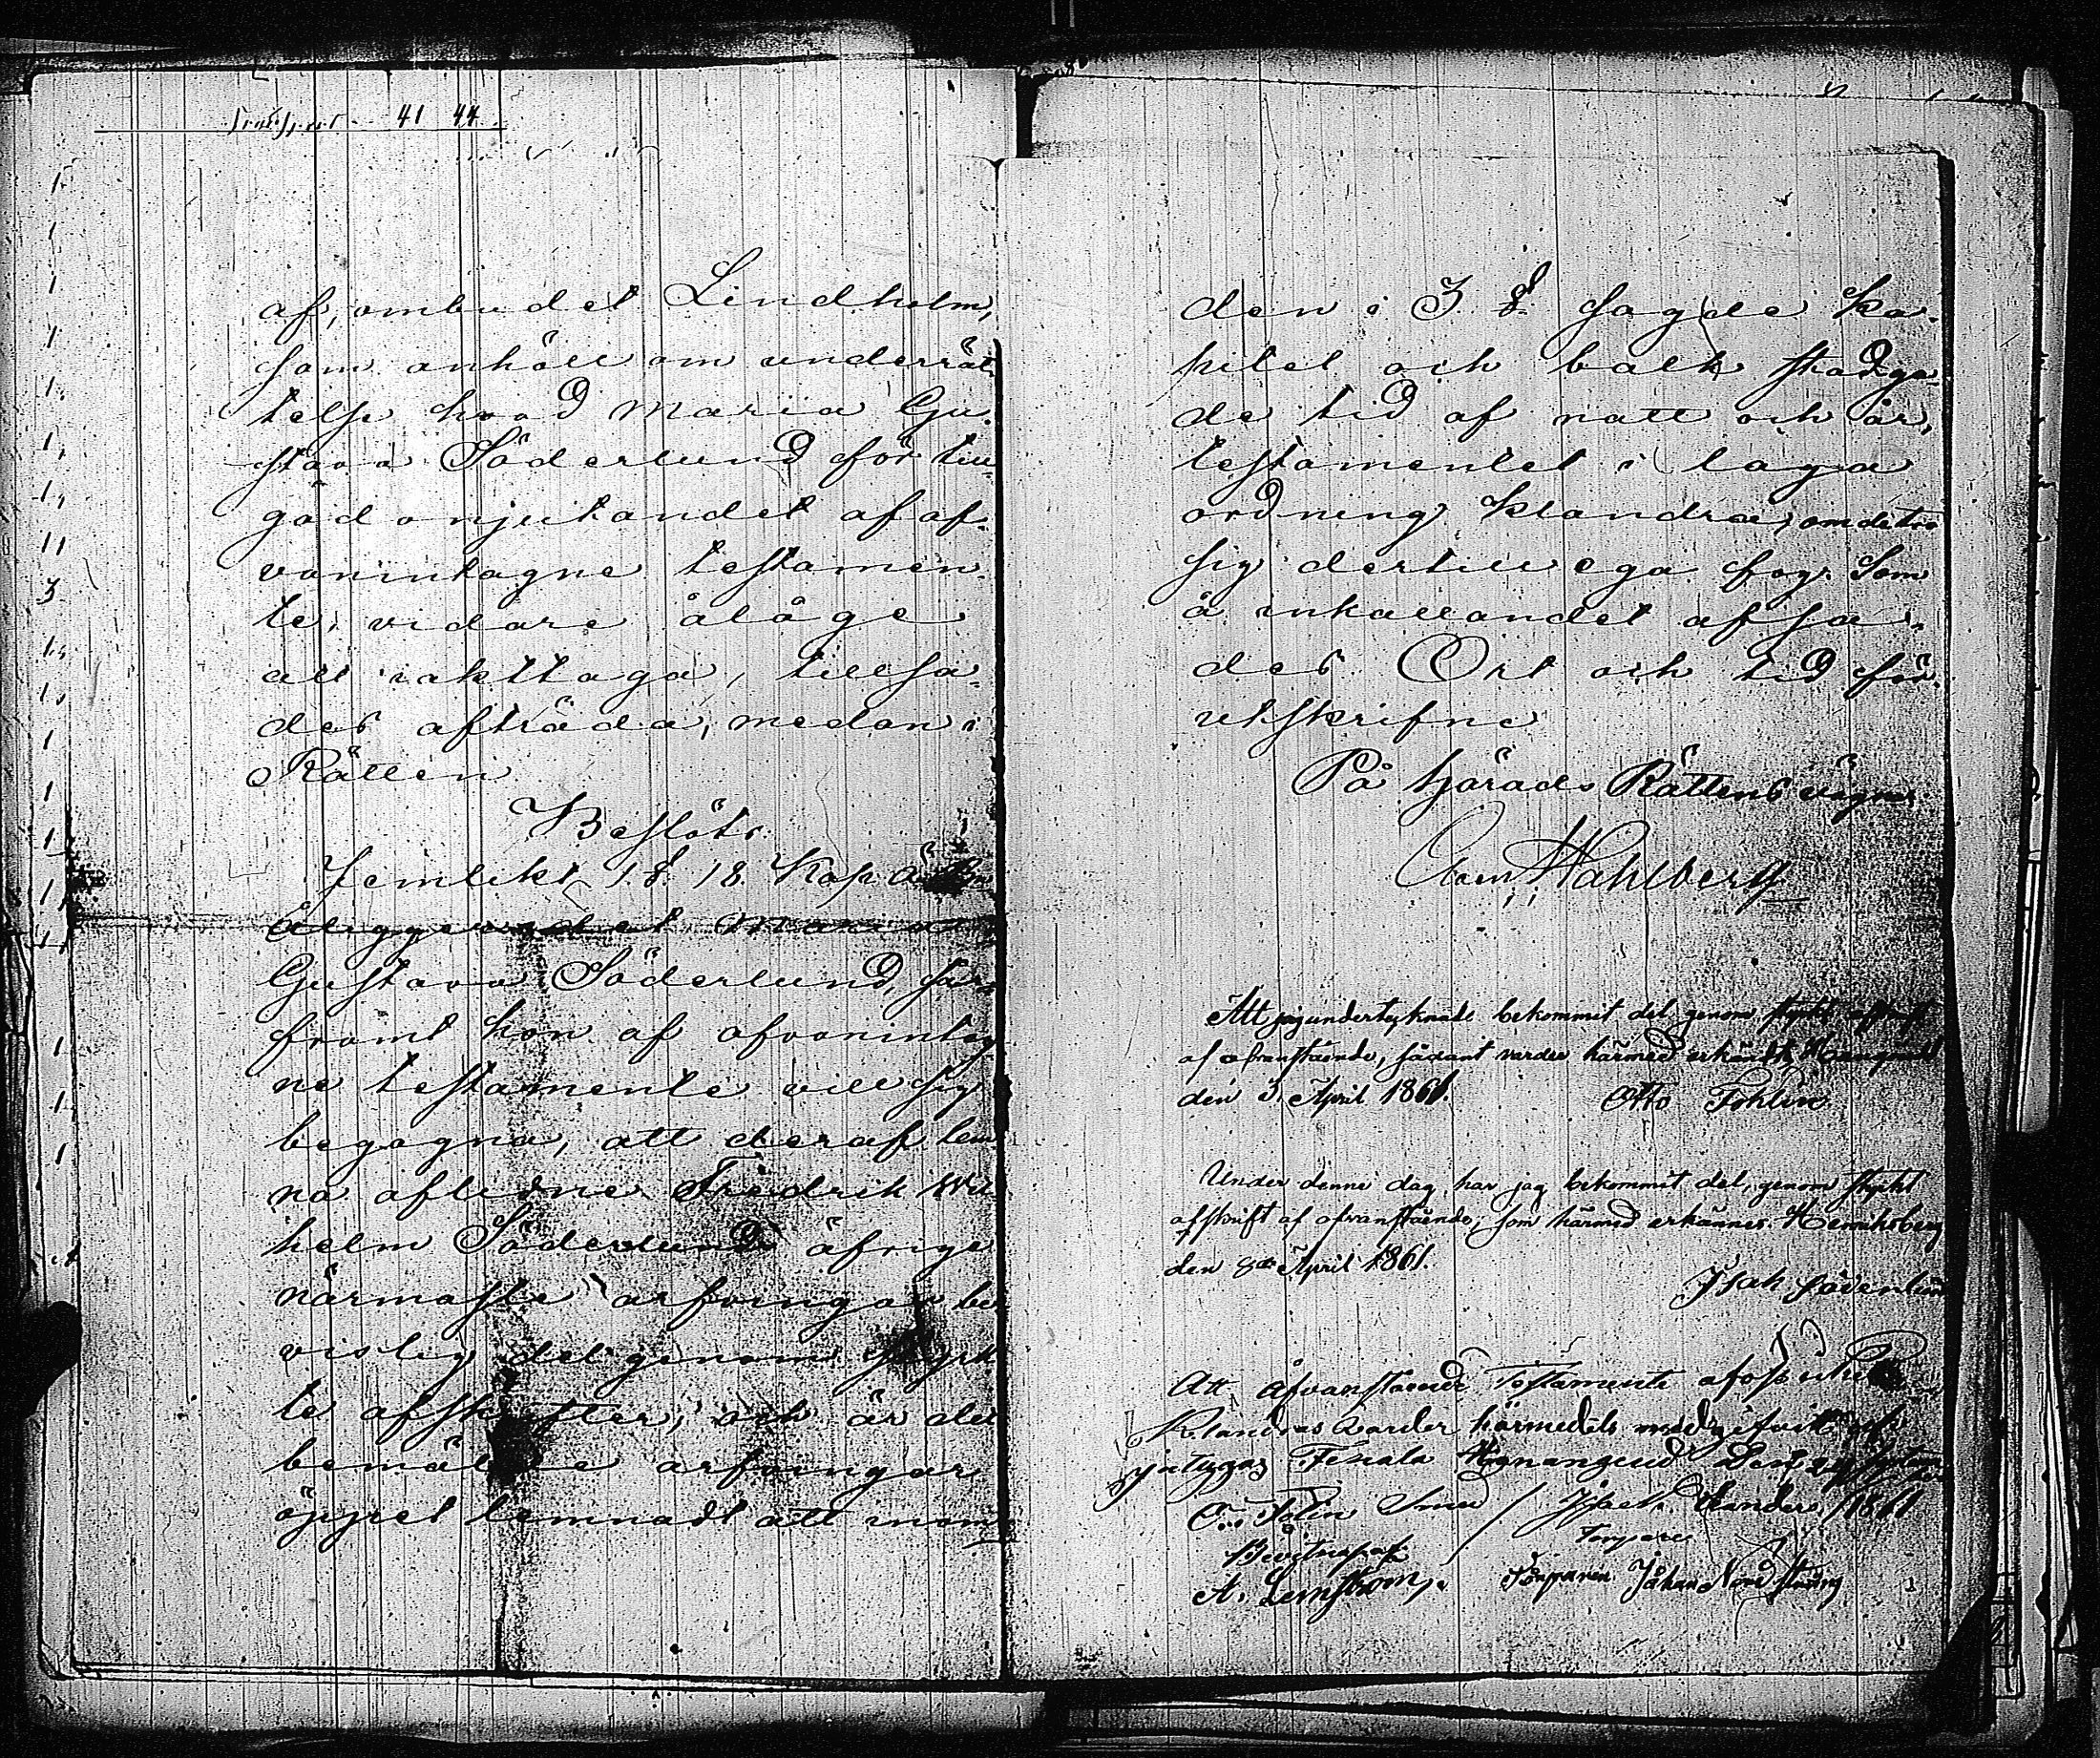 Transport 41 44
af, ombudet Lindholm,
som anhöll om underrät-
telse hvad Maria Gu-
stava Söderlund för till-
godonjutandet af of-
vanintagne testamen-
te, vidare ålåge
att iakttaga, tillsa-
des afträda, medan i
Rätten
Beslöts
Jemlikt 1. §. 18. Kap. Ä. B.
åligger det Maria
Gustava Söderlund, så-
framt hon af ofvanintag
ne testamente vill sig
begagna, att deraf lem
na aflidne Fredrik Wil
helm Söderlunds öfrige
närmaste arfvingar be
vislig del genom styrk
te afskrifter, och är det
bemälde arfvingar
öppet lemnadt att inom
den i 3 § sagde ka-
pitel och balk stadga-
de tid af natt och år,
testamentet i laga
ordning klandra, om de tro
sig dertill ega fog. Som
å inkallandet afsa-
des. Ort och tid för-
utskrifne
På HäradsRättens vägnar
Wahlberg
Att jag undertecknade bekommit del genom styrkt afskrift
af ofvanstående, sådant varder härmed erkändt,
den 3. April 1861. Otto Fohlin
Under denne dag har jag bekommit del, genom styrkt
afskrift af ofvanstående, som härmed erkännes. Henriksberg
den 8de April 1861.
Isak Söderlund
Att ofvanstående Testamente
Klandras varder härmedels
intygas Fiskala
Smed / Isack / 1861
Torpare
Bevitnas af
A. Lemström, Torparen Johan Nordström